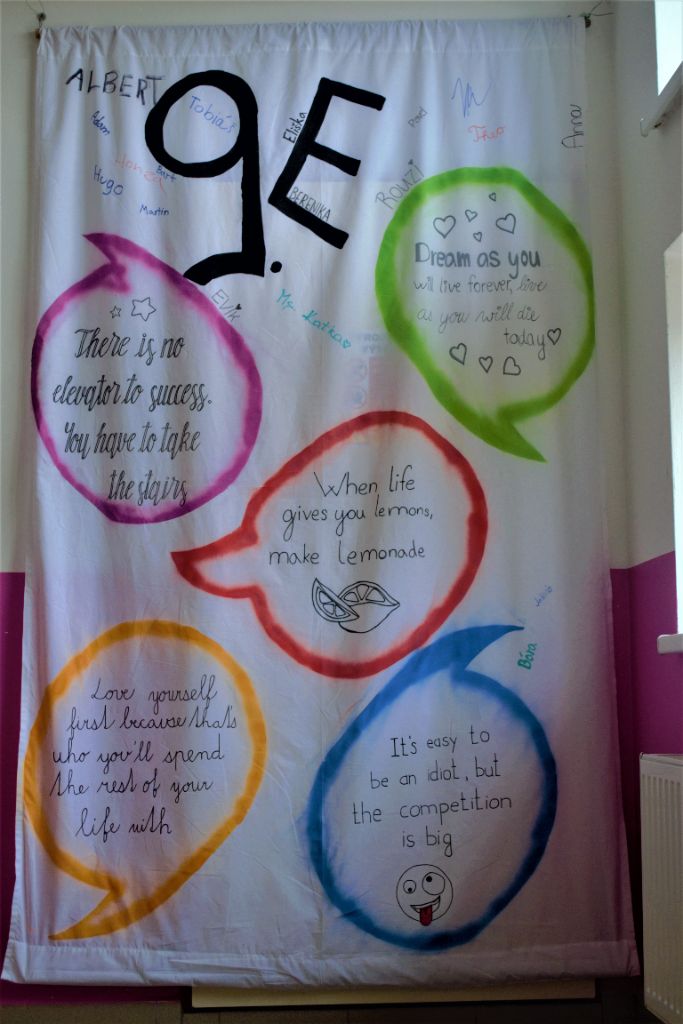 ALBERT
9.E
Tobiáš
Eliška
Adam
Honza
Bart
Hugo
Martin
BERENIKA
Theo
Anna
Rouzi
EVik
My Katka
Dream as you
will live forever, live
as you will die
today
There is no
elevator to success.
You have to take
the stairs
When life
gives you lemons,
make lemonade
Bára
Love yourself
first because that's
who you'll spend
the rest of your
life with
It's easy to
be an idiot, but
the competition
is big